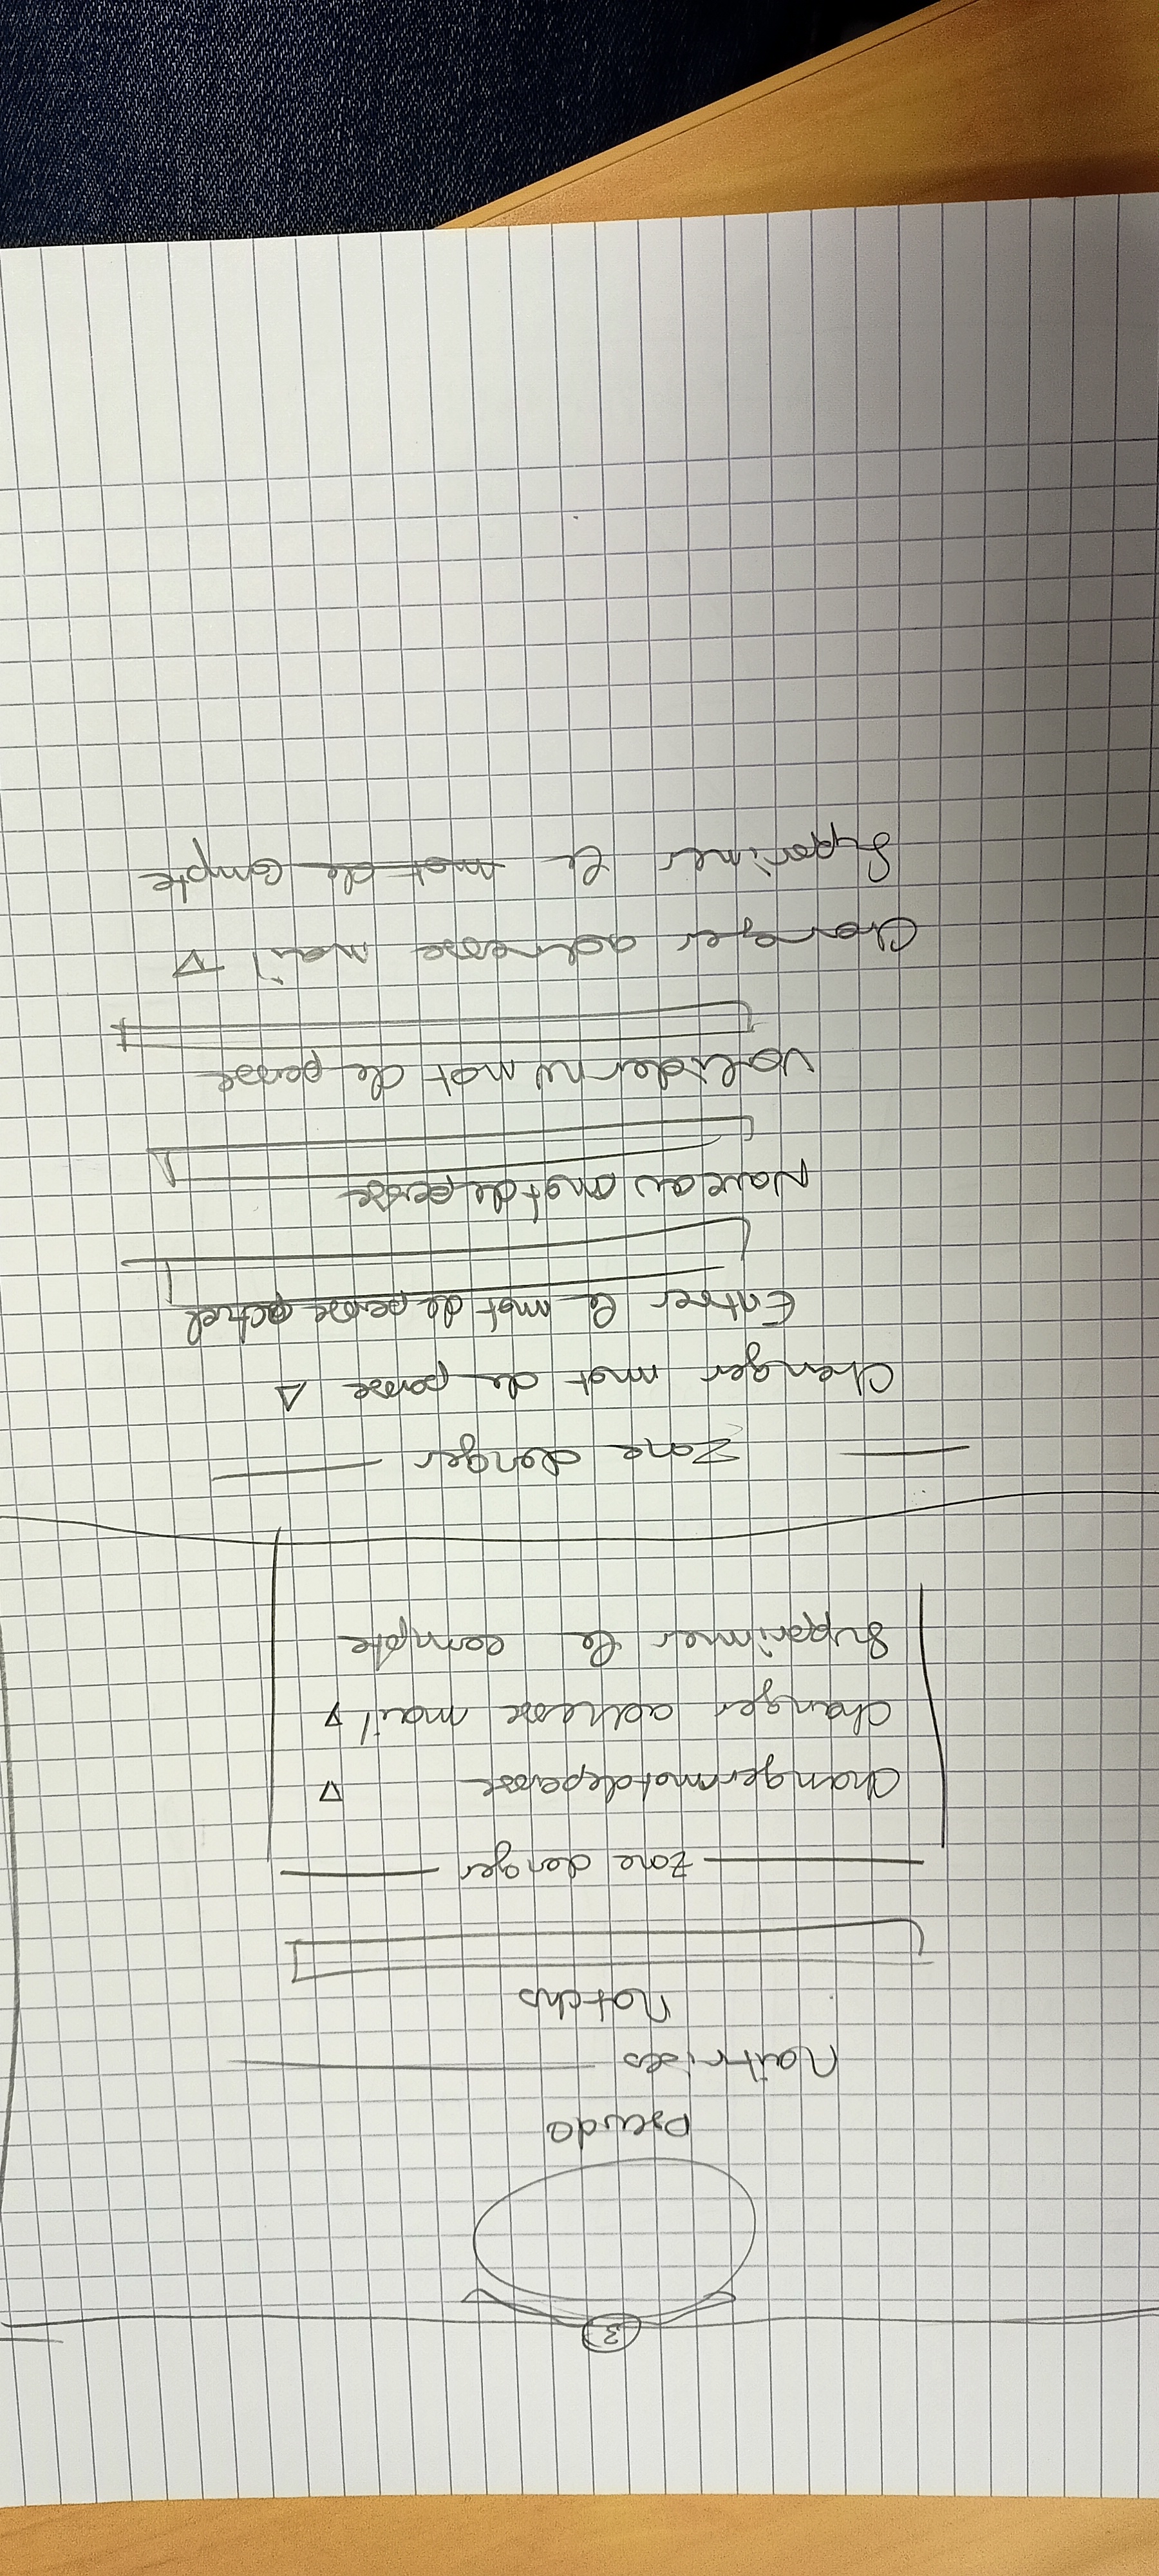 3
Pseudo
Maitrises
Notchs
Zone danger
Changer mot de passe ▽
Changer adresse mail ▽
Supprimer le compte
Zone danger
Changer mot de passe △
Entrer le mot de passe actuel
Nouveau mot de passe
mot de passe
Changer adresse mail ▽
Supprimer le mot de compte